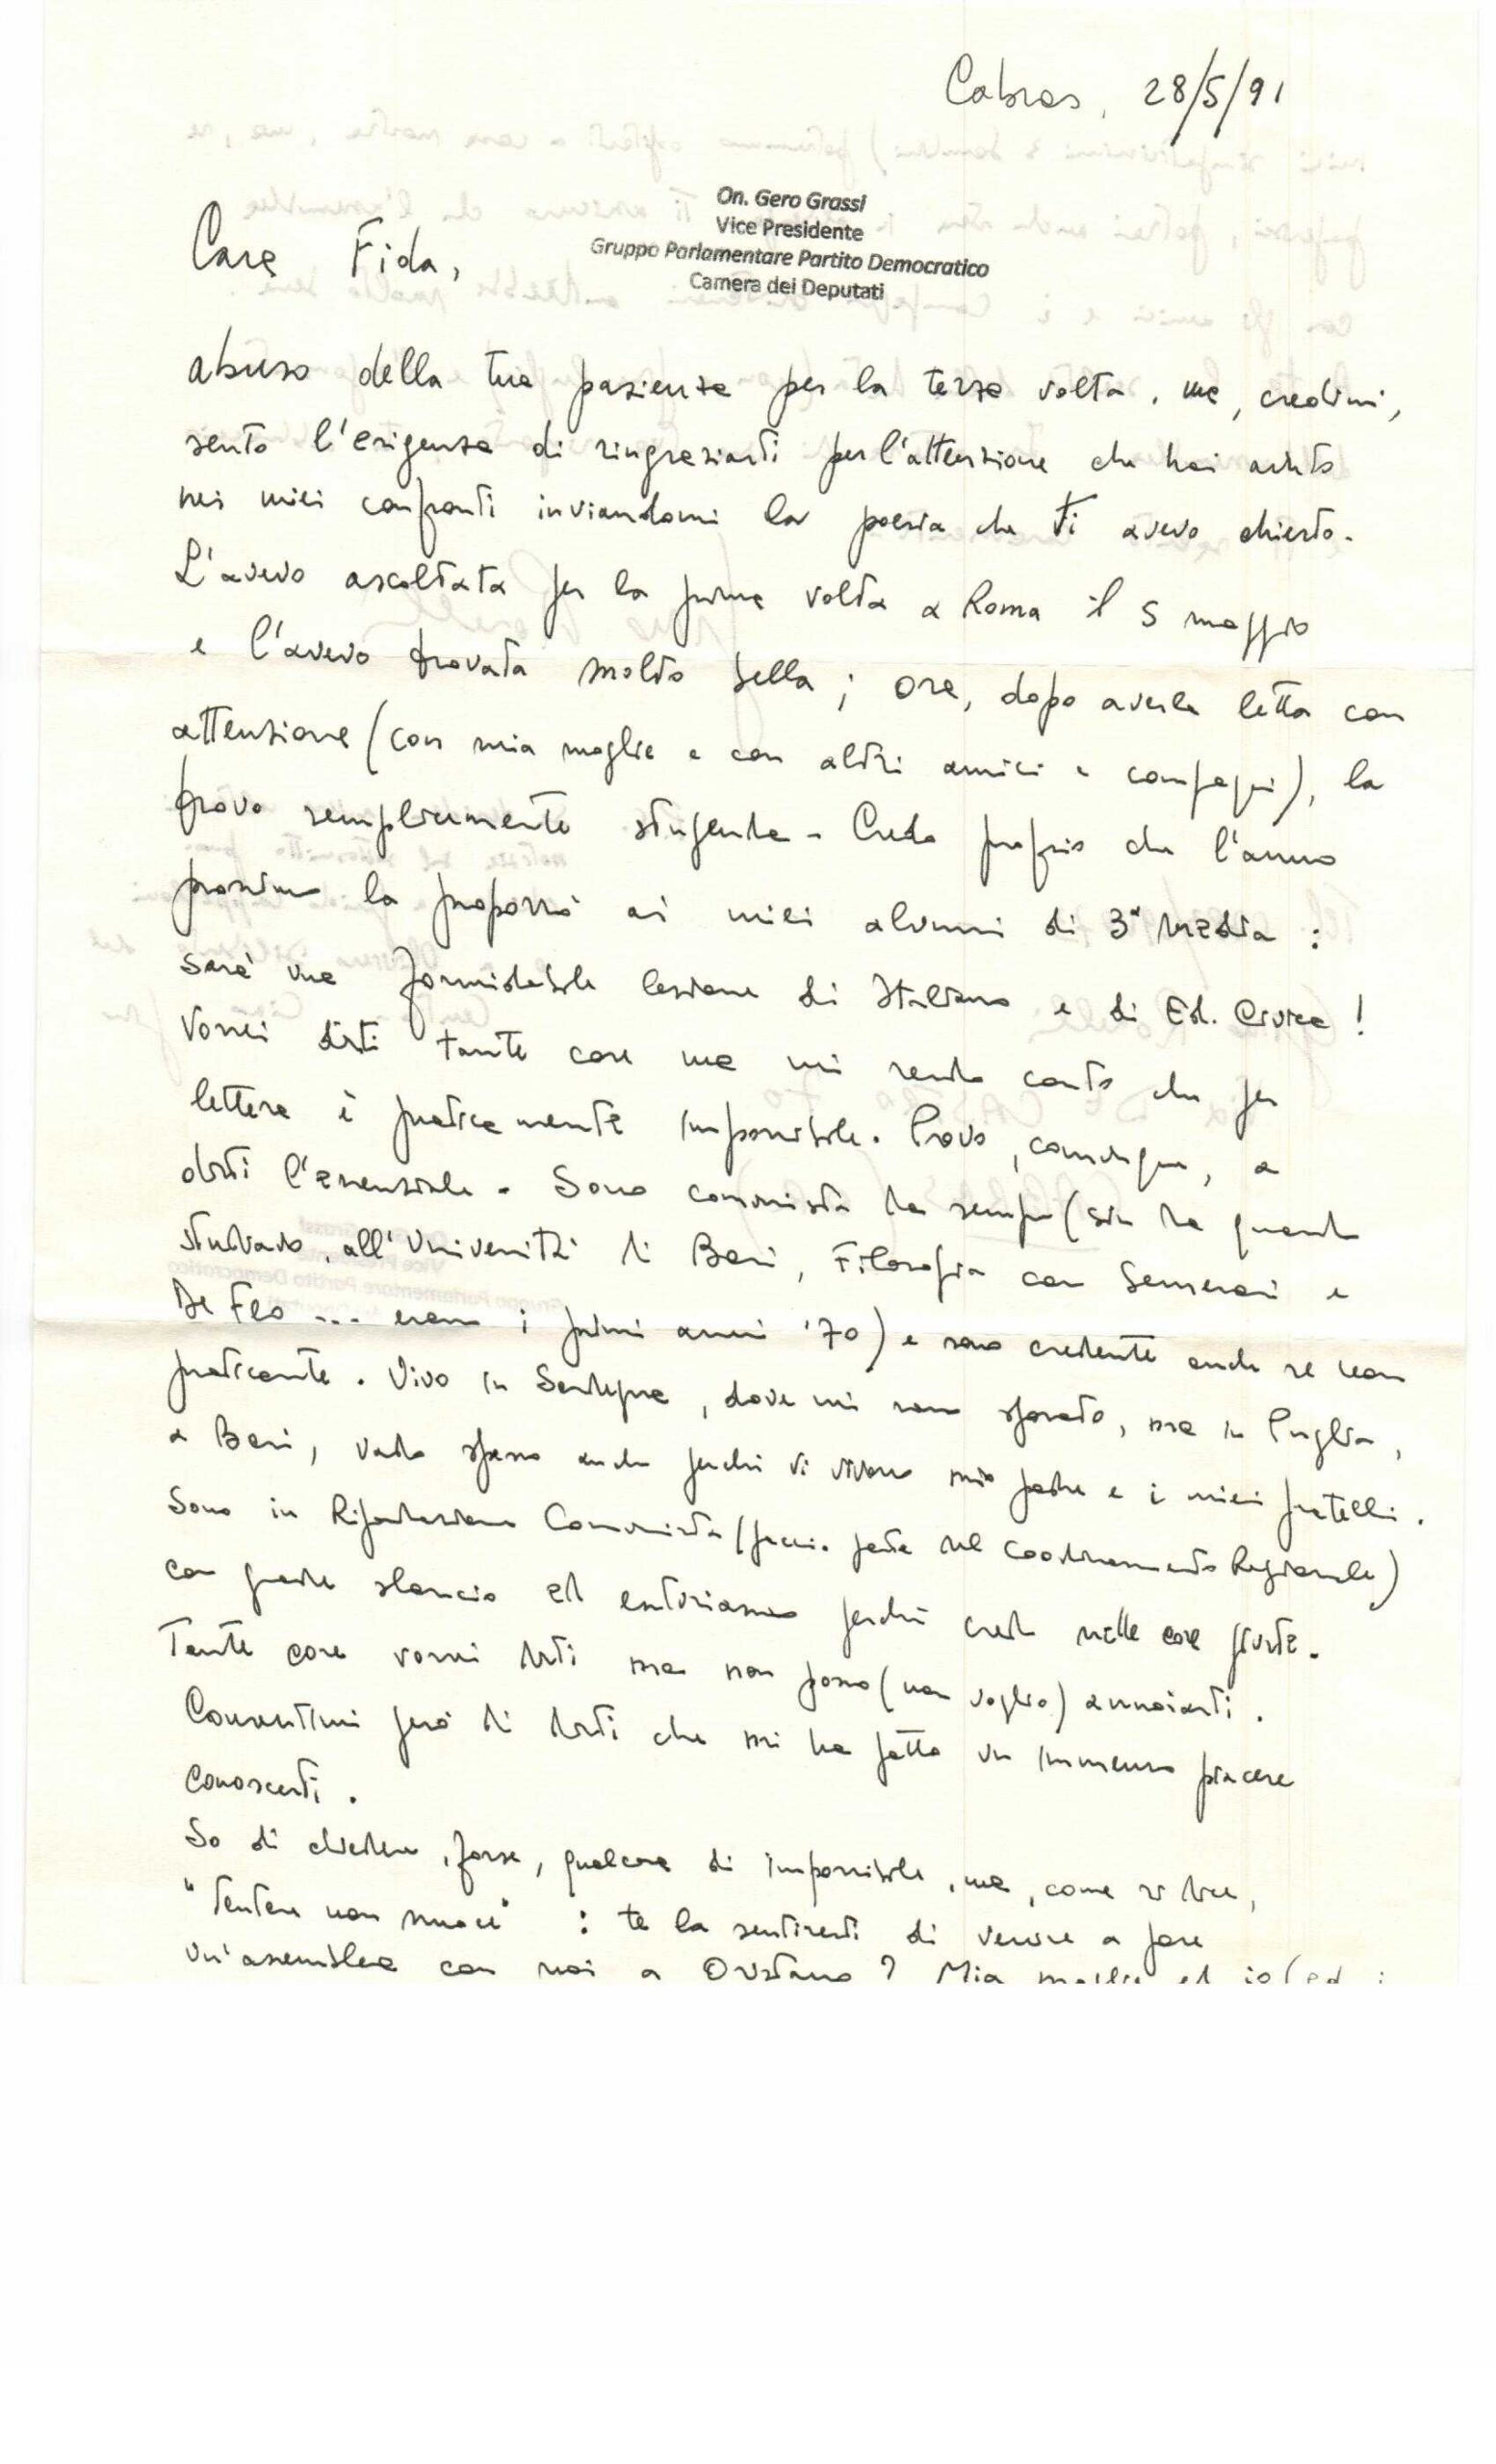 Cabras, 28/5/91
On. Gero Grassi
Vice Presidente
Gruppo Parlamentare Partito Democratico
Camera dei Deputati
Cara Fida,
abuso della tua pazienza per la terza volta, ma, credimi,
sento l'esigenza di ringraziarti per l'attenzione che hai avuto
nei miei confronti inviandomi la poesia che Ti avevo chiesto.
L'avevo ascoltata per la prima volta a Roma il 5 maggio
e l'avevo trovata molto bella; ora, dopo averla letta con
attenzione (con mia moglie e con altri amici e compagni), la
trovo semplicemente stupenda - Credo proprio che l'anno
prossimo la proporrò ai miei alunni di 3ª Media :
sarà una formidabile lezione di Italiano e di Ed. Civica!
Vorrei dirti tante cose ma mi rendo conto che per
lettera è praticamente impossibile. Provo, comunque, a
dirti l'essenziale - Sono comunista da sempre (sin da quando
studiavo, all'Università di Bari, Filosofia con Semerari e
De Feo ... erano i primi anni '70) e sono credente anche se non
praticante. Vivo in Sardegna, dove mi sono sposato, ma in Puglia,
a Bari, vado spesso anche perchè vi vivono mio padre e i miei fratelli.
Sono in Rifondazione Comunista (faccio parte del Coordinamento Regionale)
con grande slancio ed entusiasmo perchè credo nelle cose giuste.
Tante cose vorrei dirti ma non posso (non voglio) annoiarti.
Consentimi però di dirti che mi ha fatto un immenso piacere
conoscerti.
So di chiedere, forse, qualcosa di impossibile, ma, come si dice,
"tentare non nuoce" : te la sentiresti di venire a fare
un'assemblea con noi a Oristano? Mia moglie ed io (ed i